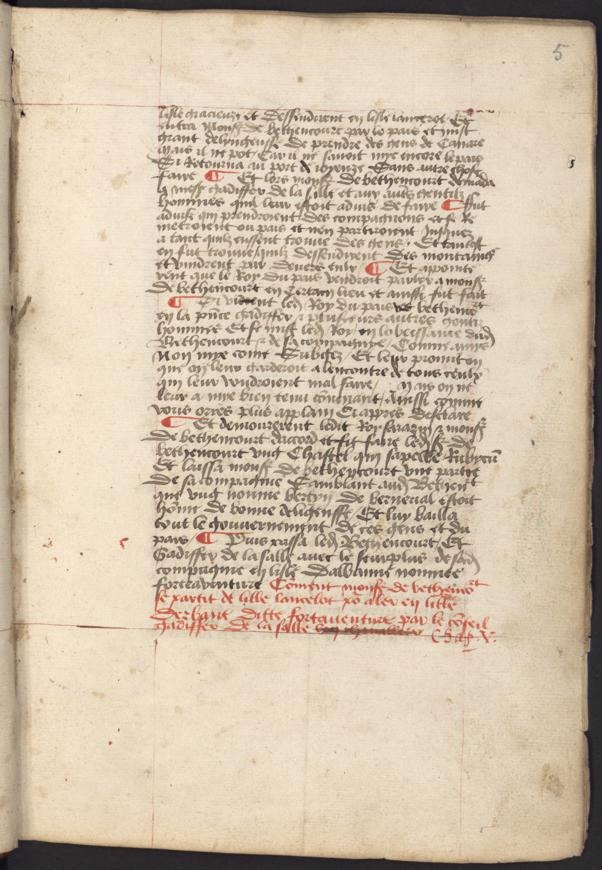 5
lisle gracieuze et dessendirent en lisle lancerot Et
entra Monsr de bethencourt par le pais et mist
grant deligensse de prendre des gens de Canare
Mais il ne pot Car il ne savoit mye encore le pays
Si Retourna au port de ioyeuze sans autre chose
faire ¶ Et lors monsr de bethencourt demanda
a messr gadiffer de la salle et aux autrs gentilz
hommes quil leur estoit advis de faire ¶ fut
advise quilz prendroient des compagnons et se Re
metroient ou pais et nen partiroient Jusques
a tant quilz eussent trouve des gens / Et tantost
en fut trouve quilz dessendirent des montaignes
et vindrent par devers eulx ¶ Et appointe
rent que le Roy du pais vendroit parler a monsr
de bethencourt en certain lieu et ainssi fut fait
¶ Si vint led Roy du pais vs bethencourt
en la presence gadiffer & plusieurs autres gentilz
hommes Et se mist led Roy en lobeissance dud
Bethencourt & de sa compagnye / Comme amis
Non mye come subgez / Et leur promist on
que on leur garderoit a lencontre de tous ceulx
qui leur voudroient mal faire / Mais on ne
leur a mye bien tenu convenant / Ainssi comme
vous orres plus applain Ci apres desclare
¶ Et demourerent ledit Roy sarazin & monsr
de bethencourt daccord et fit faire ledit sr de
bethencourt ung Chastel qui sapelle Rubycum
Et laissa monsr de bethencourt une partie
de sa compagnie samblant aud Bethencourt
que ung nomme bertyn de berneval estoit
homme de bonne deligensse Et luy bailla
tout le gouvernement de ces gens et du
pais ¶ Puis passa led Bethencourt Et
Gadiffer de la salle avec le seurplus de sad
compaignie en lisle Dalbanne nommee
forteaventure Coment monsr de bethencourt
se partit de lille lancelot pour aler en lille
Derbane ditte forteaventure par le conseil
gadiffer de la salle Chap. V.